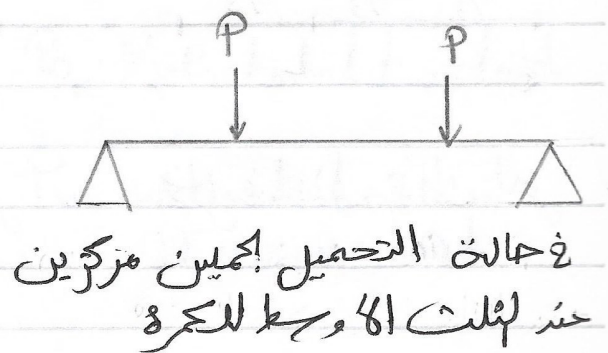 P P
في حالة التحميل بحملين مركزين
عند الثلث الأوسط للكمرة